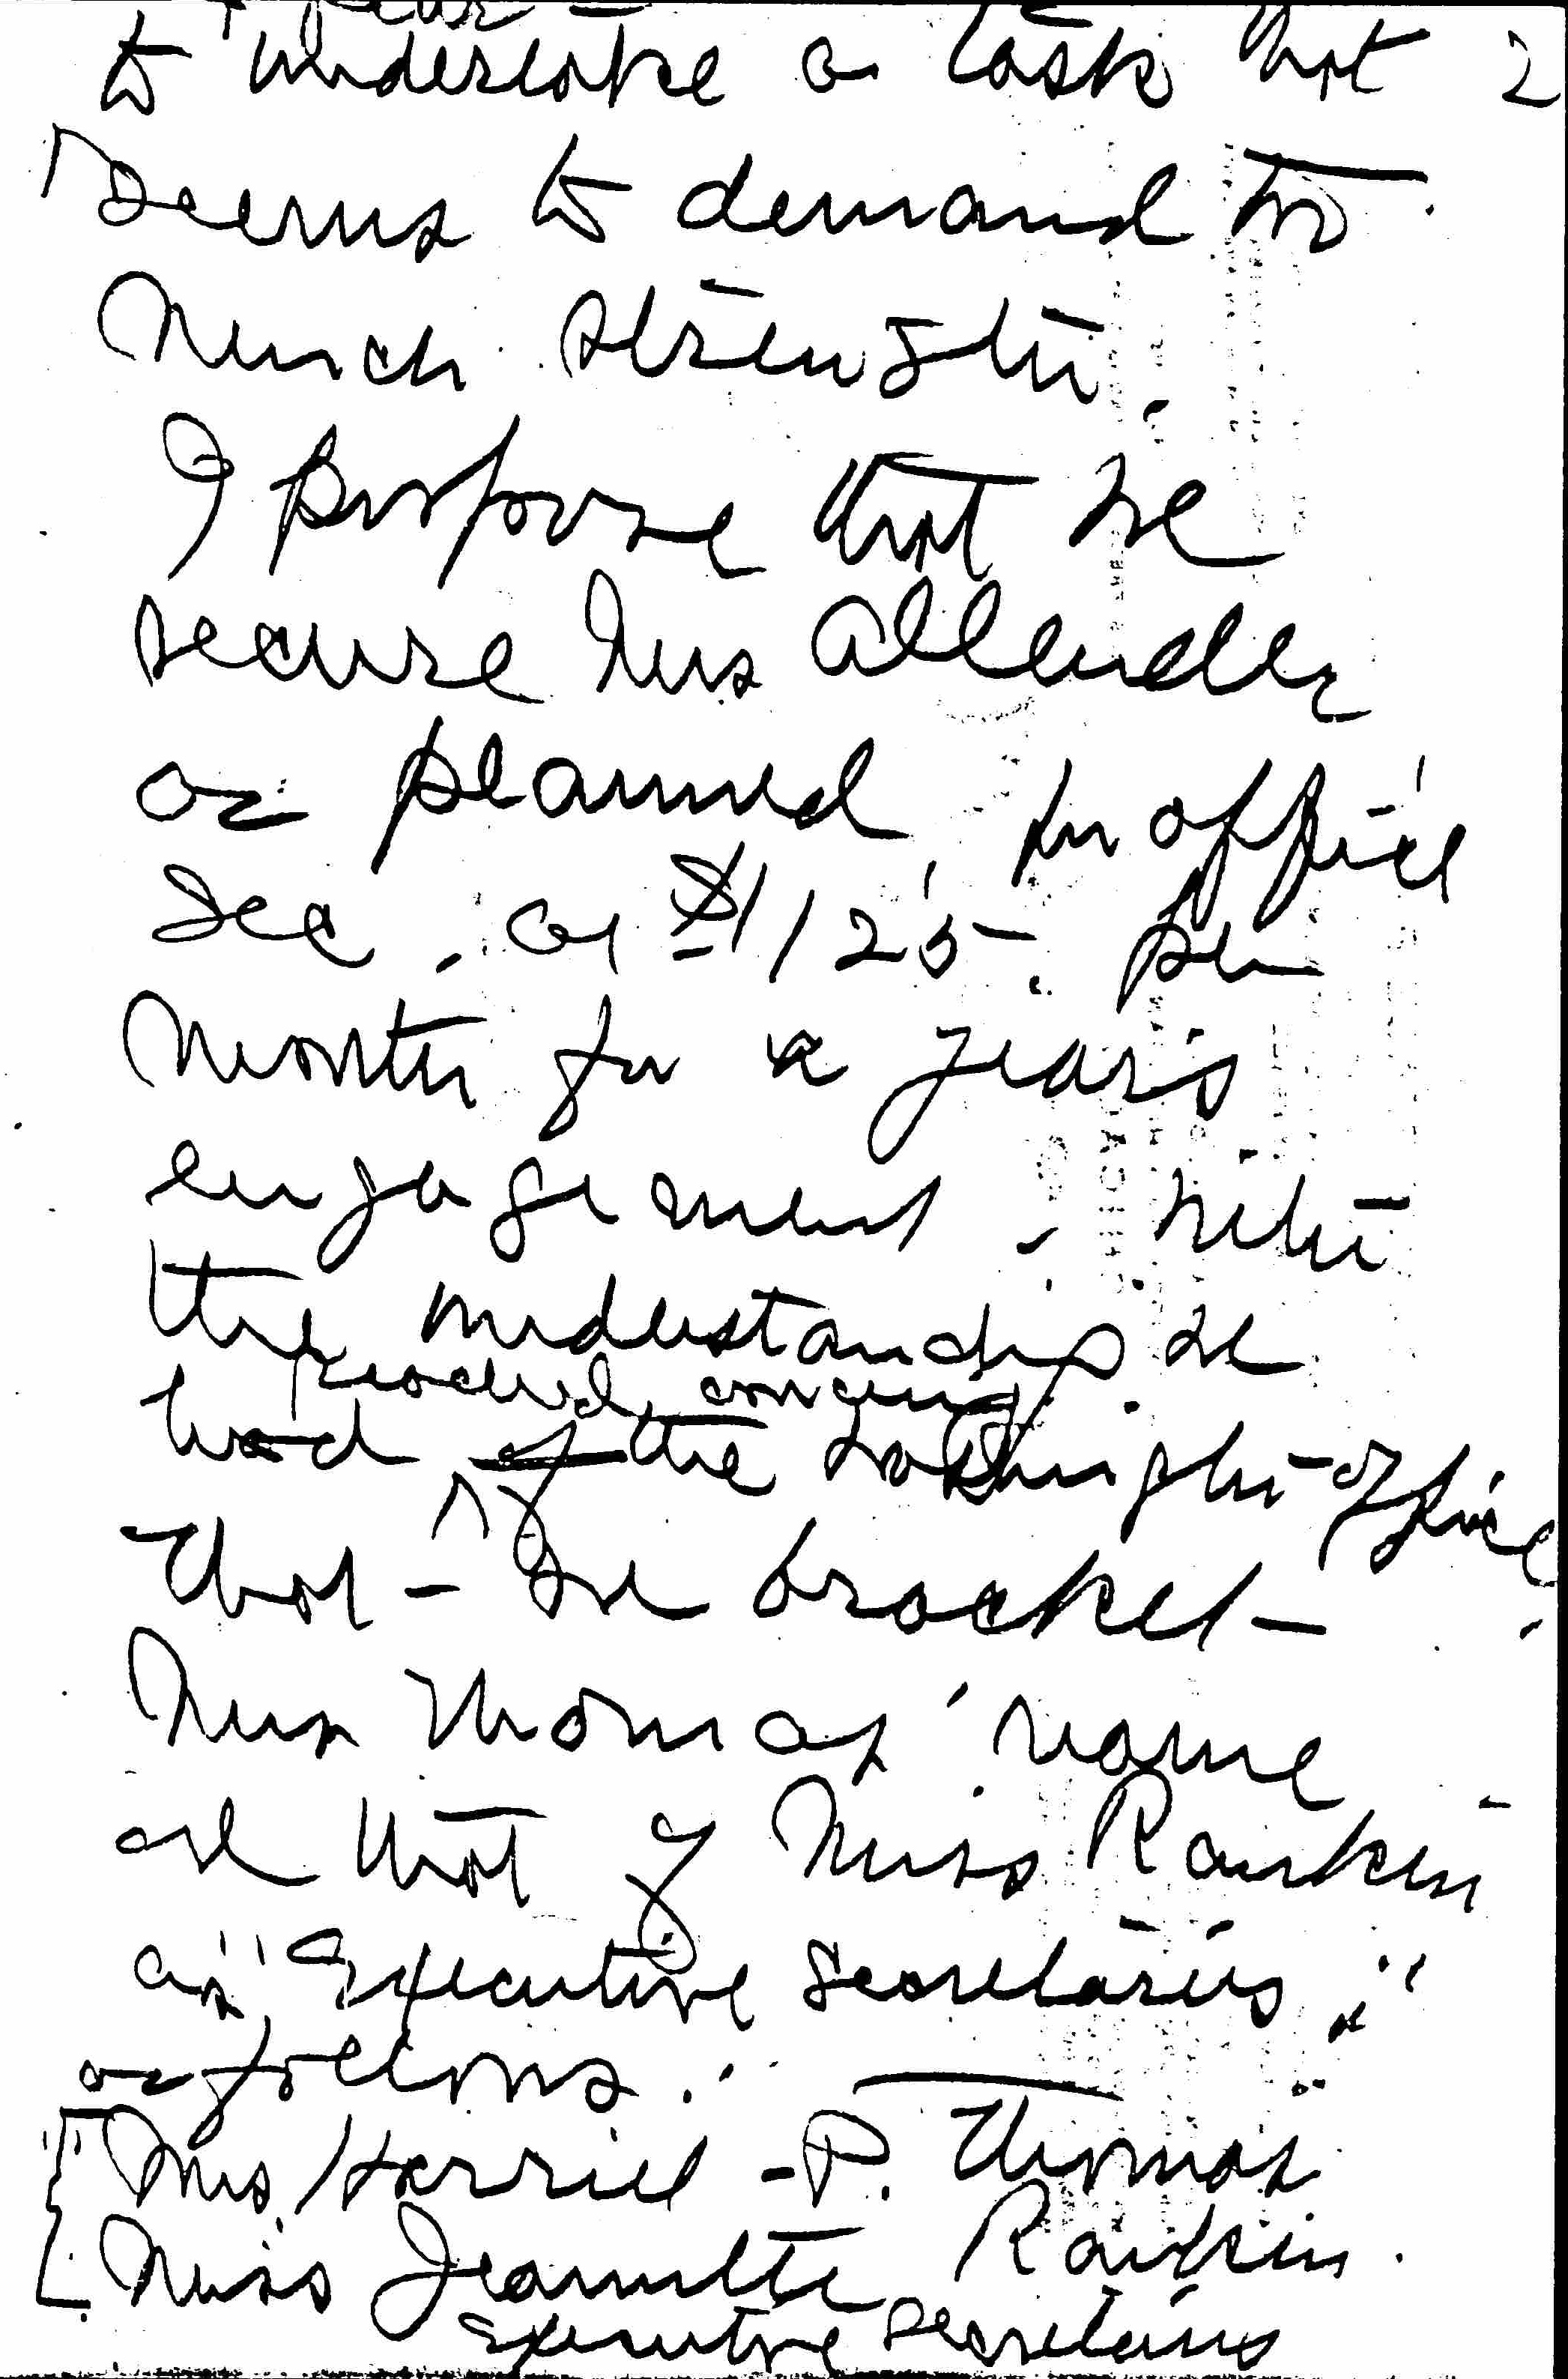 to undertake a task that 2
seems to demand too
much strength.
I propose that we
secure Mrs Allender
as planned, for office
Sec. at $125. per
month for a year's
engagement, with
the understanding we
reached concerning
had of the Washington office
that we bracket
Mrs Thomas' name
and that of Miss Rankin
as "Executive Secretaries,"
as follows:
Mrs Harriet P. Thomas
Miss Jeannette Rankin.
Executive Secretaries